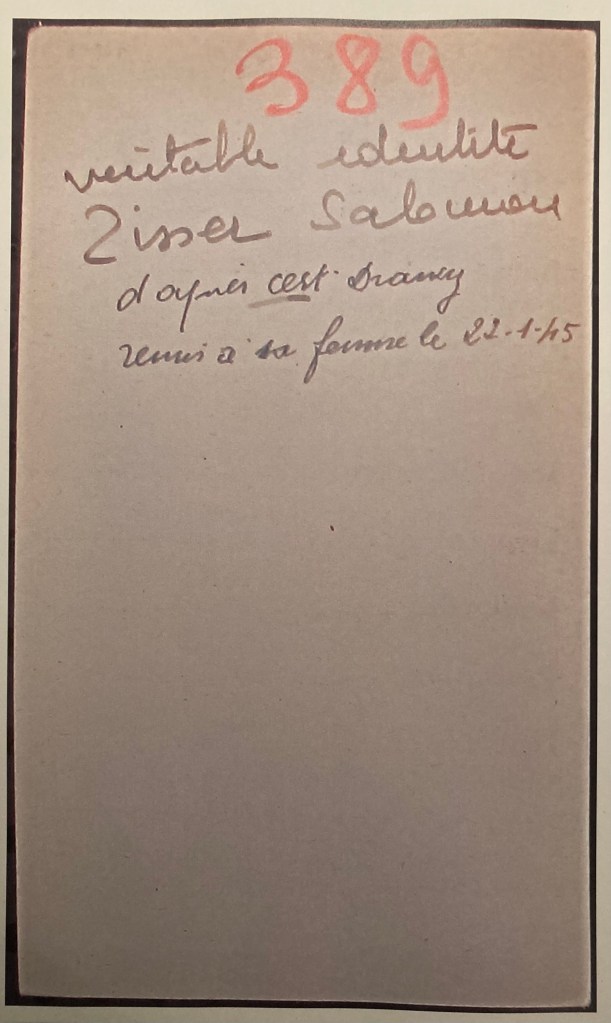 389
véritable identité
Zisser Salomon
d'après cert. Drancy
remis à sa femme le 22-1-45